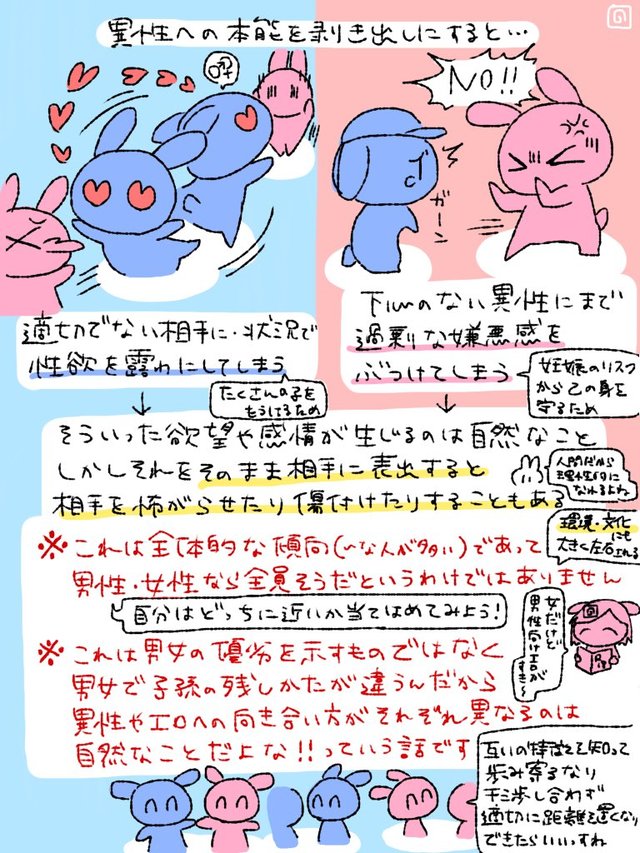 異性への本能を剥き出しにすると…
NO!!
ガーン
適切でない相手に・状況で
性欲を露わにしてしまう
たくさんの子を
もうけるため
下心のない異性にまで
過剰な嫌悪感を
ぶつけてしまう
妊娠のリスク
から己の身を
守るため
そういった欲望や感情が生じるのは自然なこと
しかしそれをそのまま相手に表出すると
相手を怖がらせたり傷付けたりすることもある
人間だから
理性的に
なれるよね
環境・文化にも
大きく左右される
※これは全体的な傾向(〜な人が多い)であって
男性・女性なら全員そうだというわけではありません
自分はどっちに近いか当てはめてみよう!
女だけど
男性向けエロが
すき〜
※これは男女の優劣を示すものではなく
男女で子孫の残しかたが違うんだから
異性やエロへの向き合い方がそれぞれ異なるのは
自然なことだよな!!っていう話です
互いの特徴を知って
歩み寄るなり
干渉し合わず
適切に距離を置くなり
できたらいいっすね